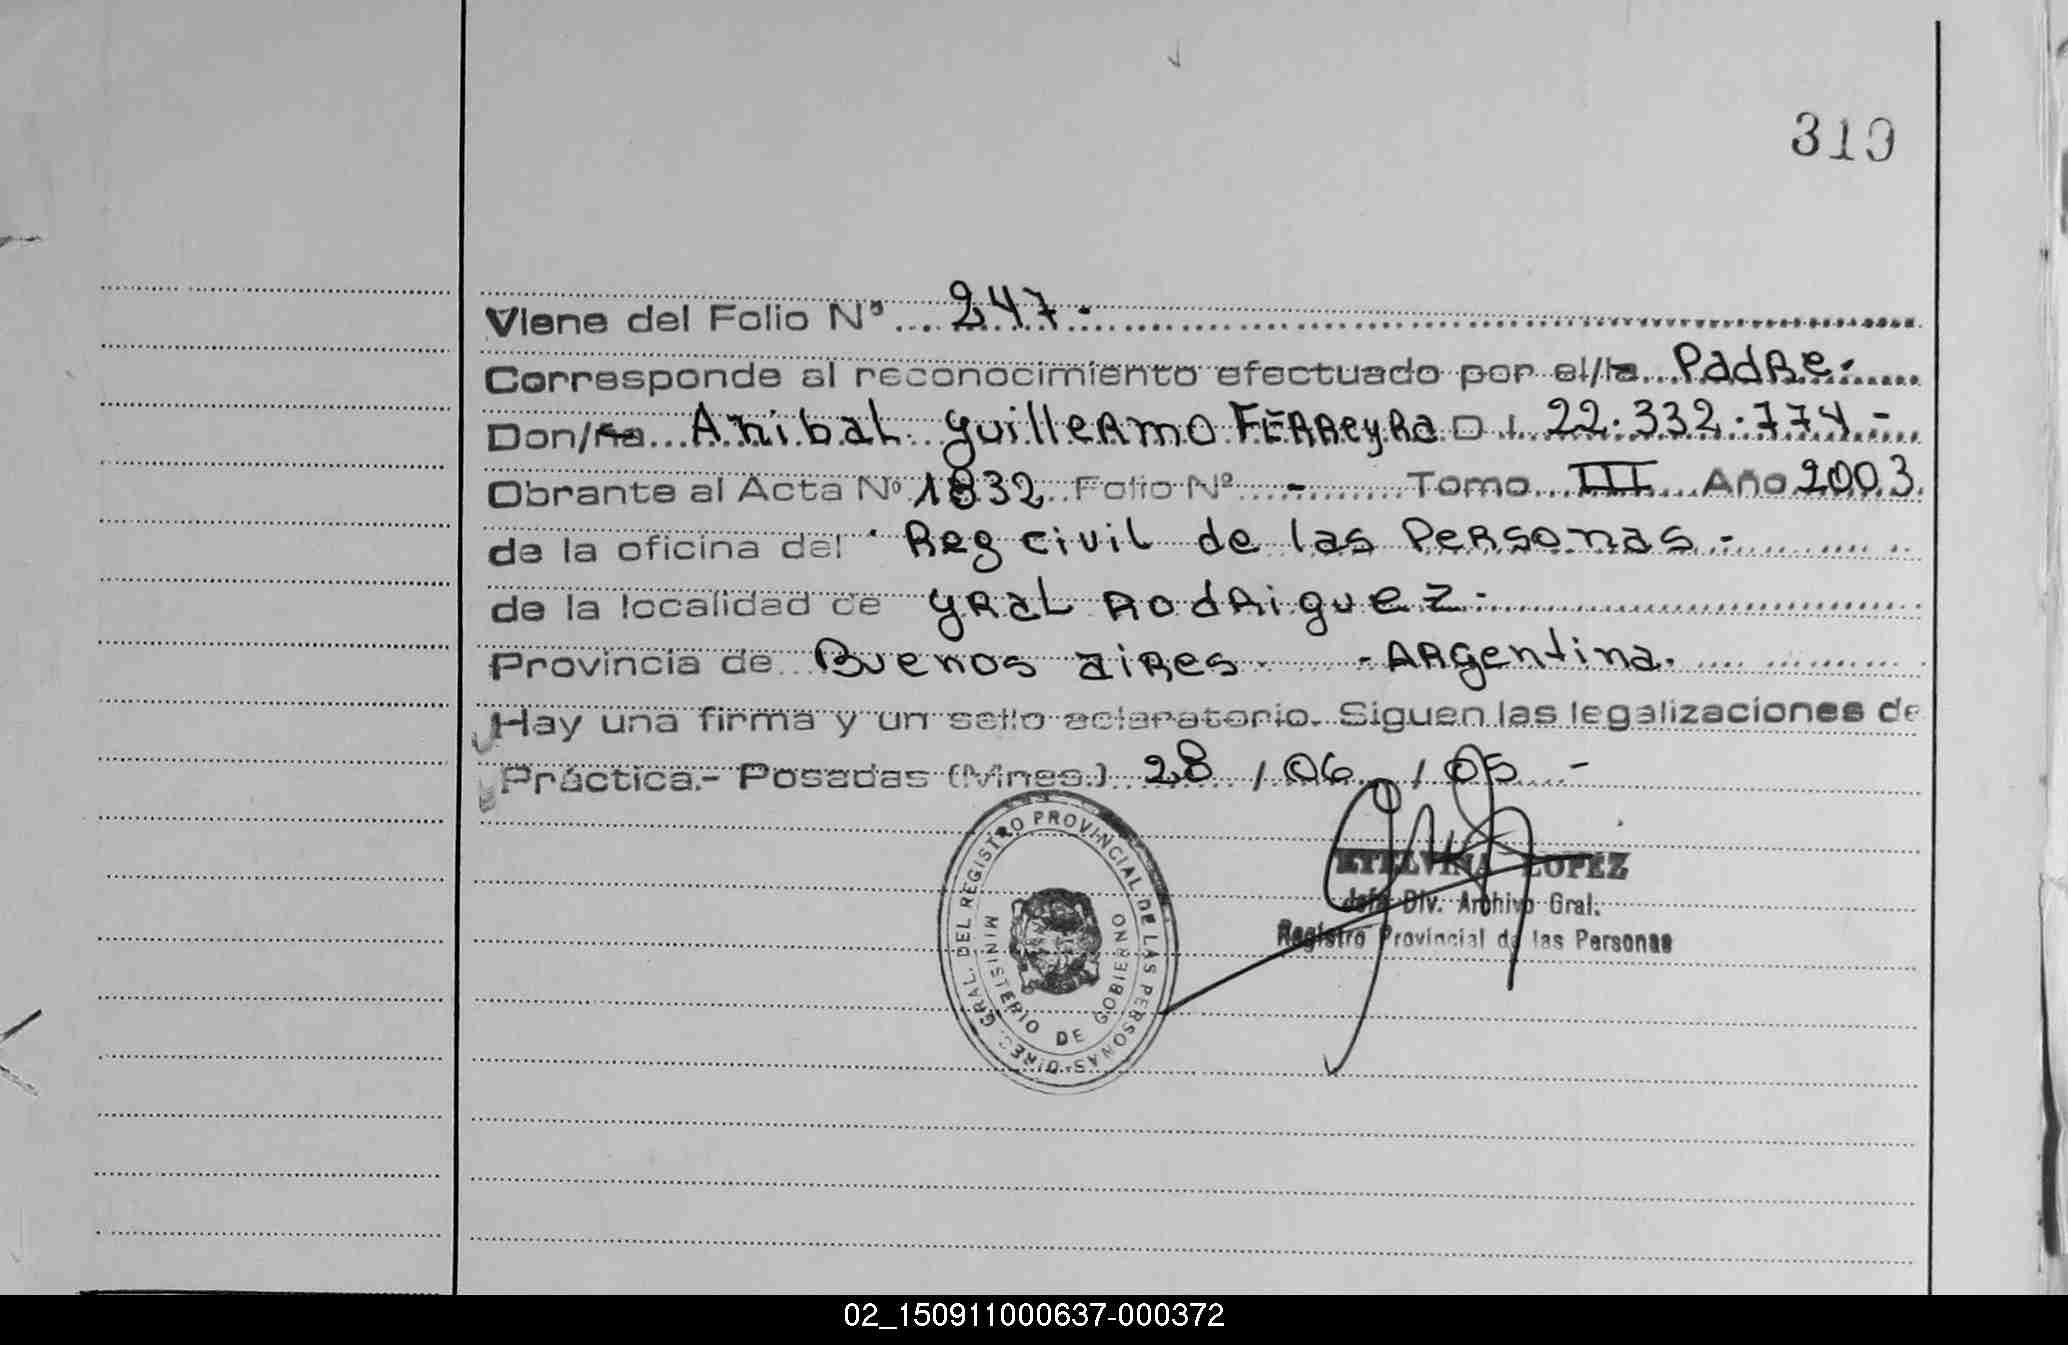 319
Viene del Folio Nº 247.-
Corresponde al reconocimiento efectuado por el/la Padre.
Don/ña Anibal Guillermo Ferreyra D I 22.332.774-
Obrante al Acta Nº 1832 Folio Nº - Tomo III Año 2003
de la oficina del Reg civil de las Personas.-
de la localidad de Gral Rodriguez.
Provincia de Buenos aires - Argentina.
Hay una firma y un sello aclaratorio. Siguen las legalizaciones de
Práctica.- Posadas (Mnes.) 28 / 06 / 05 -
DIREC. GRAL. DEL REGISTRO PROVINCIAL DE LAS PERSONAS
MINISTERIO DE GOBIERNO
ETELVINA LOPEZ
Jefe Div. Archivo Gral.
Registro Provincial de las Personas
02_150911000637-000372